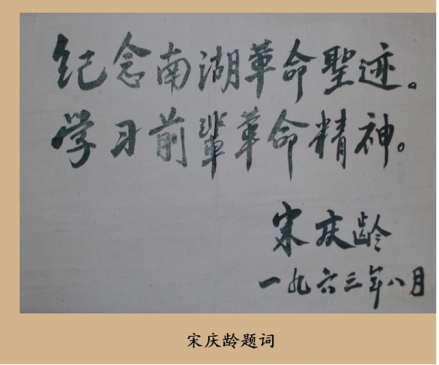 纪念南湖革命聖迹。
学习前辈革命精神。
宋庆龄
一九六三年八月
宋庆龄题词